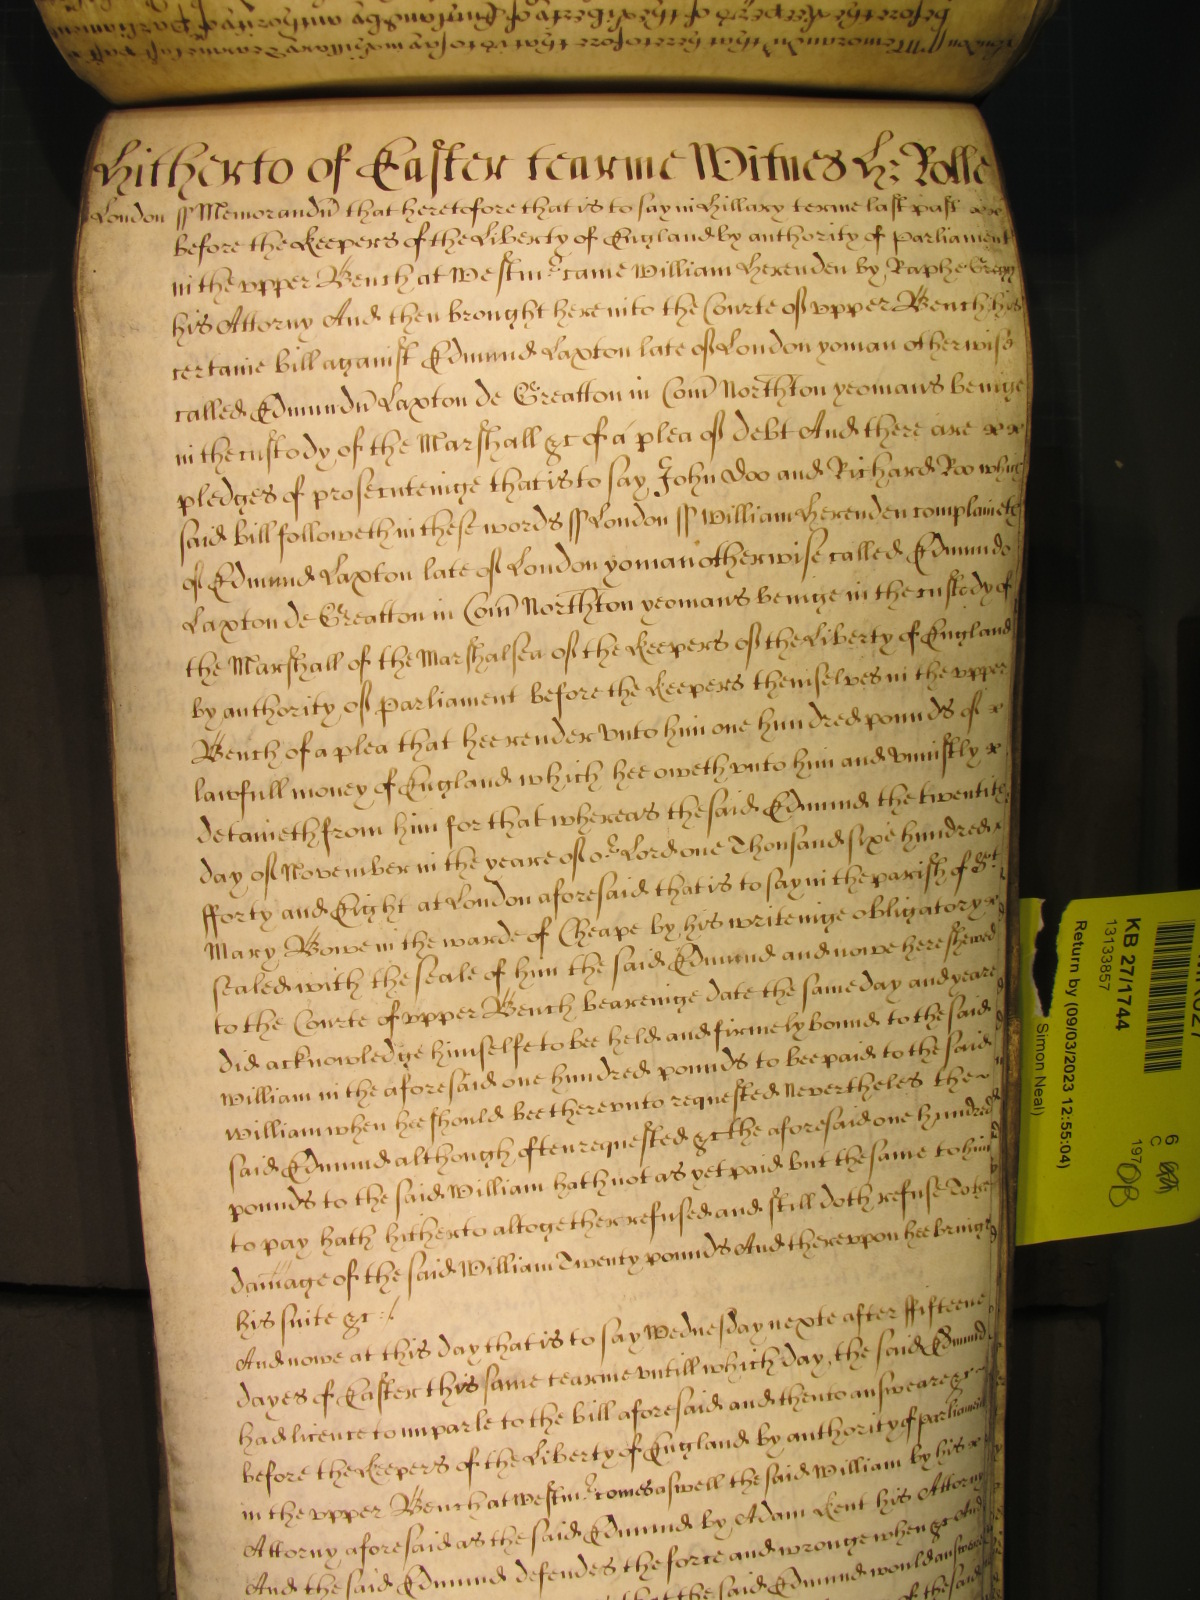 Hitherto of Easter tearme Witnes H: Rolle
London ss Memorandū that heretofore that is to say in Hillary terme last past
before the Keepers of the Liberty of England by authority of Parliament
in the vpper Bench at Westmr came William Herenden by Raphe Gregg
his Attorny And then brought here into the Courte of vpper Bench his
certaine bill against Edmund Laxton late of London yoman otherwise
called Edmundū Laxton de Greatton in Com̄ Northton yeomans beinge
in the custody of the Marshall &c of a plea of debt And there are
pledges of prosecuteinge that is to say John Doo and Richard Roo which
said bill followeth in these words ss London ss William Herenden complaineth
of Edmund Laxton late of London yoman otherwise called Edmundū
Laxton de Greatton in Com̄ Northton yeomans beinge in the custody of
the Marshall of the Marshalsea of the Keepers of the Liberty of England
by authority of Parliament before the Keepers themselves in the vpper
Bench of a plea that hee render vnto him one hundred pounds of
lawfull money of England which hee oweth vnto him and vniustly
detaineth from him for that whereas the said Edmund the twentith
day of November in the yeare of or Lord one Thousand sixe hundred
fforty and Eight at London aforesaid that is to say in the parish of St
Mary Bowe in the warde of Cheape by his writeinge obligatory
sealed with the seale of him the said Edmund and nowe here shewed
to the Courte of vpper Bench beareinge date the same day and yeare
did acknowledge himselfe to bee held and firmely bound to the said
William in the aforesaid one hundred pounds to bee paid to the said
William when hee should bee therevnto requested Nevertheles the
said Edmund although often requested &c the aforesaid one hundred
pounds to the said William hath not as yet paid but the same to him
to pay hath hitherto altogether refused and still doth refuse To the
dammage of the said William Twenty pounds And therevpon hee bringe
his suite &c :/
And nowe at this day that is to say Wednesday nexte after ffifteene
dayes of Easter this same tearme vntill which day, the said Edmund
had licence to imparle to the bill aforesaid and then to answeare &c
before the Keepers of the Liberty of England by authority of parliament
in the vpper Bench at Westmr comes aswell the said William by his
Attorny aforesaid as the said Edmund by Adam Kent his Attorny
And the said Edmund defendes the force and wronge when &c And
that the said Edmund would answeare
of the said
KB 27/1744
13133857
Return by (09/03/2023 12:55:04)
Simon Neal)
6
C
197